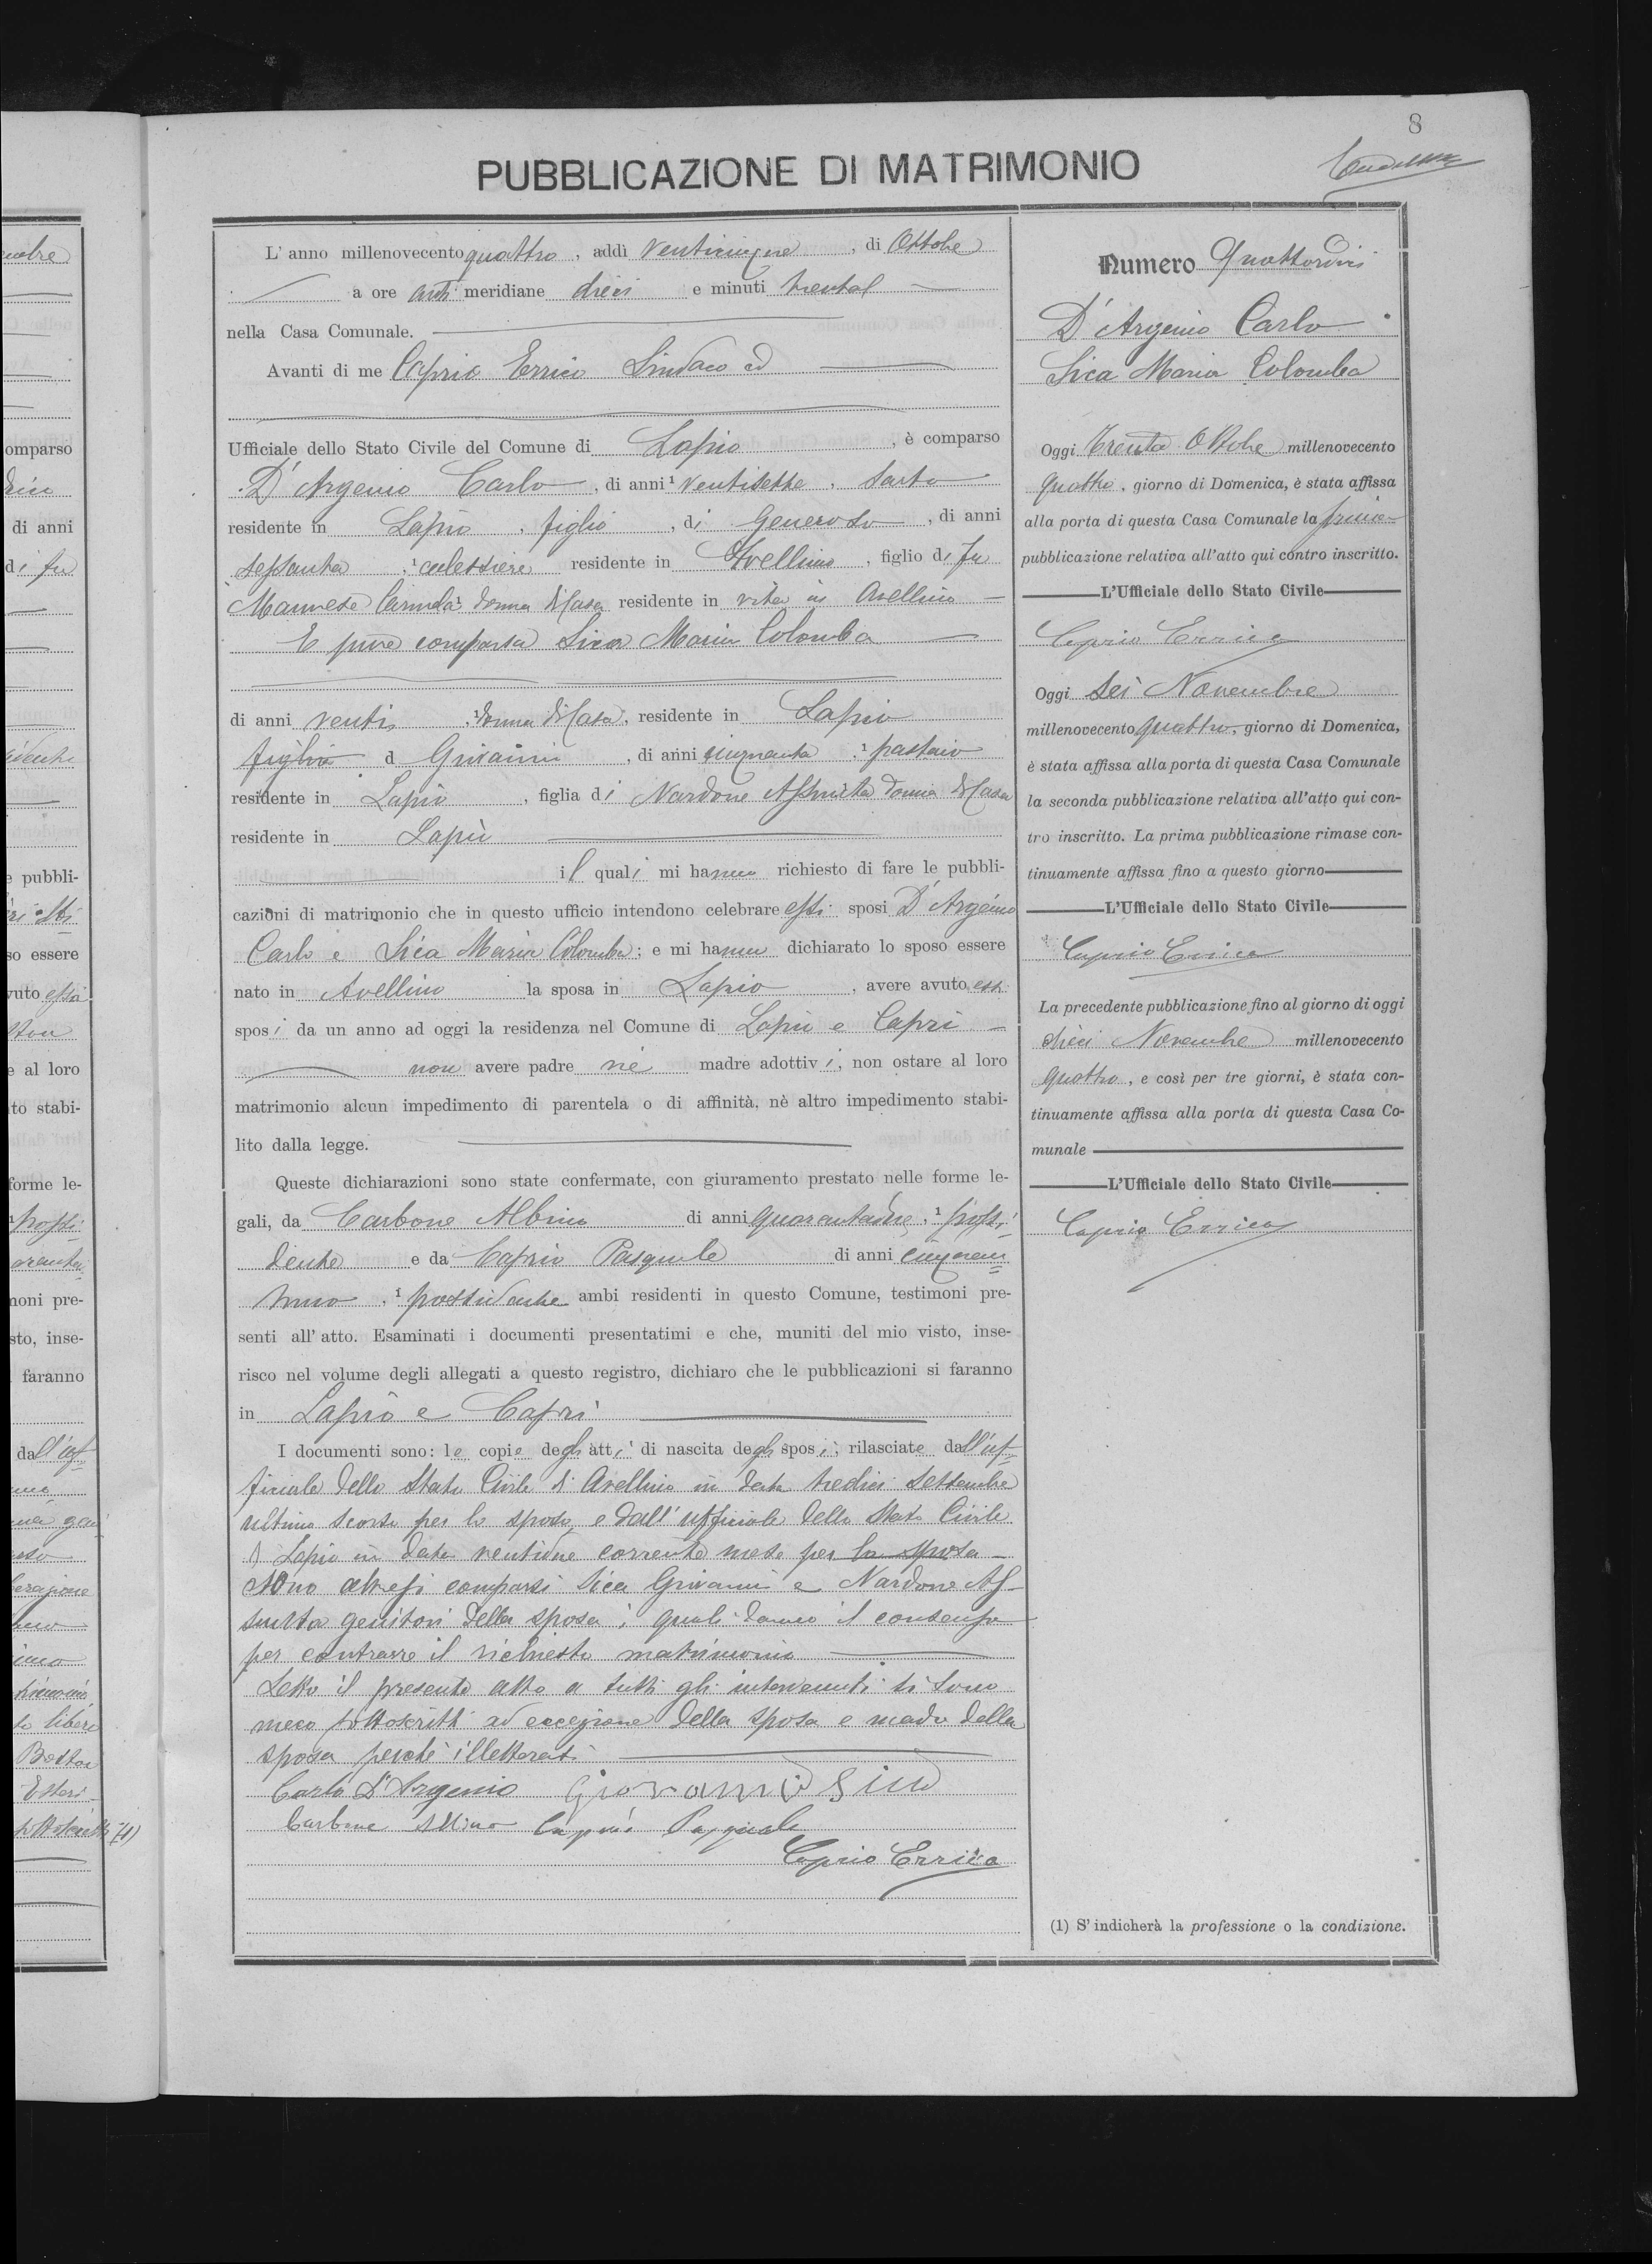 8
PUBBLICAZIONE DI MATRIMONIO
L'anno millenovecento quattro, addì venticinque, di Ottobre
a ore anti meridiane dieci e minuti trenta
nella Casa Comunale.
Avanti di me Caprio Errico Sindaco ed
Ufficiale dello Stato Civile del Comune di Lapio, è comparso
D'Argenio Carlo, di anni ¹ ventisette, sarto
residente in Lapio, figlio, di Generoso, di anni
sessanta, ¹ calessiere residente in Avellino, figlio di fu
Carmela ¹ donna di Casa residente in vita in Avellino
E pure comparsa Sica Maria Colomba
di anni venti, ¹ donna di Casa, residente in Lapio
figlia d Giovanni, di anni cinquanta, ¹ pastaio
residente in Lapio, figlia di Nardone Assunta donna di Casa
residente in Lapio
il quali mi hanno richiesto di fare le pubbli-
cazioni di matrimonio che in questo ufficio intendono celebrare essi sposi D'Argenio
Carlo e Sica Maria Colomba; e mi hanno dichiarato lo sposo essere
nato in Avellino la sposa in Lapio, avere avuto essi
sposi da un anno ad oggi la residenza nel Comune di Lapio e Capri
non avere padre nè madre adottivi, non ostare al loro
matrimonio alcun impedimento di parentela o di affinità, nè altro impedimento stabi-
lito dalla legge.
Queste dichiarazioni sono state confermate, con giuramento prestato nelle forme le-
gali, da Carbone Albino di anni, ¹ possi
dente e da Caprio Pasquale di anni cinquan
tuno, ¹ possidente ambi residenti in questo Comune, testimoni pre-
senti all'atto. Esaminati i documenti presentatimi e che, muniti del mio visto, inse-
risco nel volume degli allegati a questo registro, dichiaro che le pubblicazioni si faranno
in Lapio e Capri
I documenti sono: le copie degli atti di nascita degli sposi, rilasciate dall'uf-
ficiale dello Stato Civile di Avellino in data tredici Settembre
ultimo scorso per lo sposo, e dall'ufficiale dello Stato Civile
di Lapio in data ventidue corrente mese per la sposa
Sono altresi comparsi Sica Giovanni e Nardone As-
sunta genitori della sposa i quali danno il consenso
per contrarre il richiesto matrimonio
Letto il presente atto a tutti gli intervenuti si sono
meco sottoscritti ad eccezione della sposa e madre della
sposa perchè illetterati
Carlo D'Argenio Giovanni Sica
Carbone Albino Caprio Pasquale
Caprio Errico
Numero Quattordici
D'Argenio Carlo
Sica Maria Colomba
Oggi trenta Ottobre millenovecento
quattro, giorno di Domenica, è stata affissa
alla porta di questa Casa Comunale la prima
pubblicazione relativa all'atto qui contro inscritto.
L'Ufficiale dello Stato Civile
Caprio Errico
Oggi sei Novembre
millenovecento quattro, giorno di Domenica,
è stata affissa alla porta di questa Casa Comunale
la seconda pubblicazione relativa all'atto qui con-
tro inscritto. La prima pubblicazione rimase con-
tinuamente affissa fino a questo giorno
L'Ufficiale dello Stato Civile
Caprio Errico
La precedente pubblicazione fino al giorno di oggi
dieci Novembre millenovecento
quattro, e così per tre giorni, è stata con-
tinuamente affissa alla porta di questa Casa Co-
munale
L'Ufficiale dello Stato Civile
Caprio Errico
(1) S'indicherà la professione o la condizione.